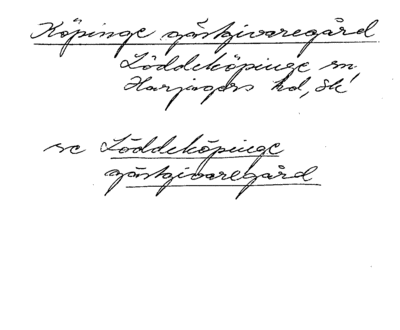 Köpinge gästgivaregård
Löddeköpinge sn
Harjagers hd, Sk
se Löddeköpinge
gästgivaregård